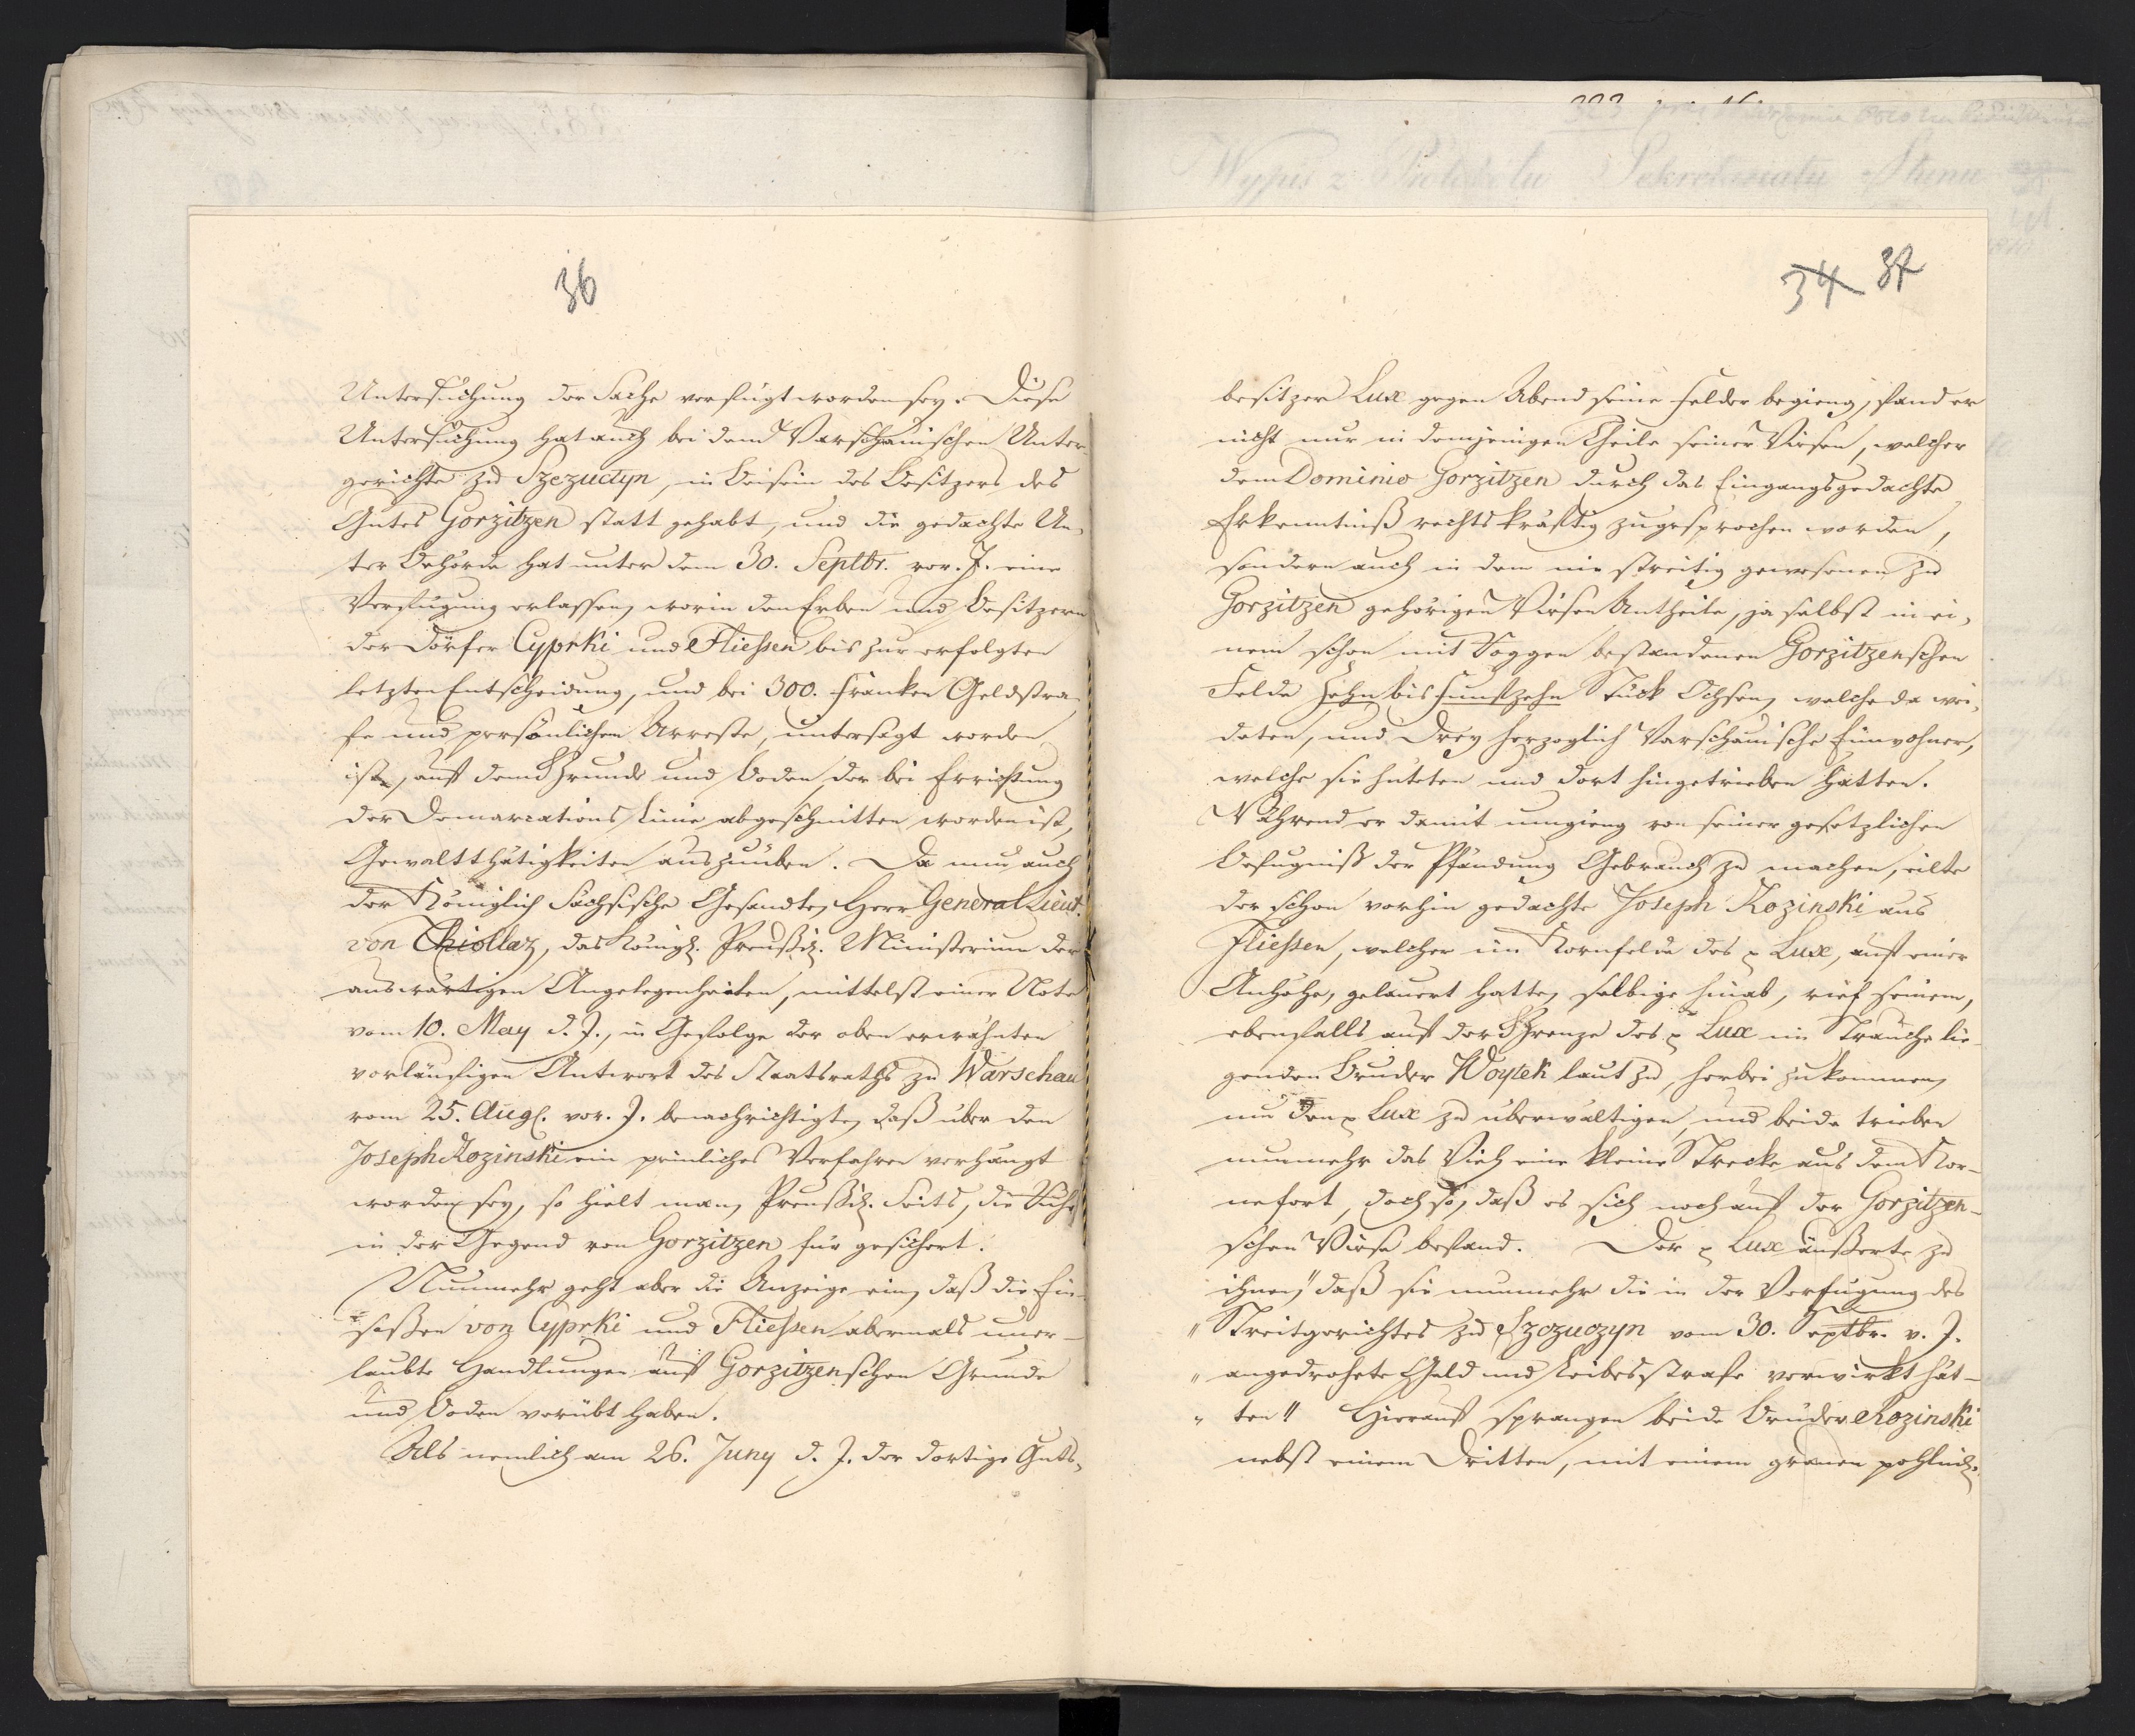 36
Untersuchung der Sache verfügt worden sey. Diese
Untersuchung hat auch bei dem Warschauischen Unter-
gerichte zu Szczuctyn, in Beisein des Besitzers des
Gutes Gorzitzen statt gehabt, und die gedachte Un-
ter Behörde hat unter dem 30. Septbr. vor. J. eine
Verfügung erlassen, worin den Erben und Besitzern
der Dörfer Cyprki und Fliessen bis zur erfolgten
letzten Entscheidung, und bei 300. Franken Geldstra-
fe und persönlichem Arreste, untersagt worden
ist, auf dem Grunde und Boden, der bei Errichtung
der Demarcations Linie abgeschnitten worden ist,
Gewaltthätigkeiten auszuüben. Da nun auch
der Königlich Sächsische Gesandte, Herr General Lieut.
von Thiollaz, das Königl. Preußisch. Ministerium der
auswärtigen Angelegenheiten, mittelst einer Note
vom 10. May d. J., in Gefolge der oben erwähnten
vorläufigen Antwort des Staatsraths zu Warschau
vom 25. Aug. vor. J. benachrichtigte, daß über den
Joseph Kozinski ein peinliches Verfahren verhängt
worden sey, so hielt man, Preußisch. Seits, die Ruhe
in der Gegend von Gorzitzen für gesichert.
Nunmehr geht aber die Anzeige ein, daß die Ein-
saßen von Cyprki und Fliessen abermals uner-
laubte Handlungen auf Gorzitzenschen Grunde
und Boden verübt haben.
Als nemlich am 26. Juny d. J. der dortige Guts-
34 37
besitzer Lux gegen Abend seine Felder begieng, fand er
nicht nur in demjenigen Theile seiner Wiesen, welcher
dem Dominio Gorzitzen durch das Eingangsgedachte
Erkenntniß rechtskräftig zugesprochen worden,
sondern auch in dem nie streitig gewesenen zu
Gorzitzen gehörigen Wiesen Antheile, ja selbst in ei-
nem schon mit Roggen bestandenen Gorzitzenschen
Felde Zehn bis Funfzehn Stück Ochsen, welche da wei-
deten, und Drey Herzoglich Warschauische Einwohner,
welche sie hüteten und dort hingetrieben hatten.
Während er damit umgieng von seiner gesetzlichen
Befugniß der Pfändung Gebrauch zu machen, eilte
der schon vorhin gedachte Joseph Kozinski aus
Fliessen, welcher im Kornfelde des p Lux, auf einer
Anhöhe, gelauert hatte, selbige hinab, rief seinem,
ebenfalls auf der Grenze des p Lux im Strauche lie-
genden Bruder Woytek laut zu, herbei zu kommen,
um den p Lux zu überwältigen, und beide trieben
nunmehr das Vieh eine kleine Strecke aus dem Kor-
ne fort, doch so, daß es sich noch auf der Gorzitzen-
schen Wiese befand. Der p Lux äußerte zu
ihnen, " daß sie nunmehr die in der Verfügung des
" Streitgerichtes zu Szczuczyn vom 30. Septbr. v. J.
" angedrohete Geld und Leibesstrafe verwirkt hät-
" ten " Hierauf sprangen beide Brüder Kozinski
nebst einem Dritten, mit einem grauen pohlnisch.